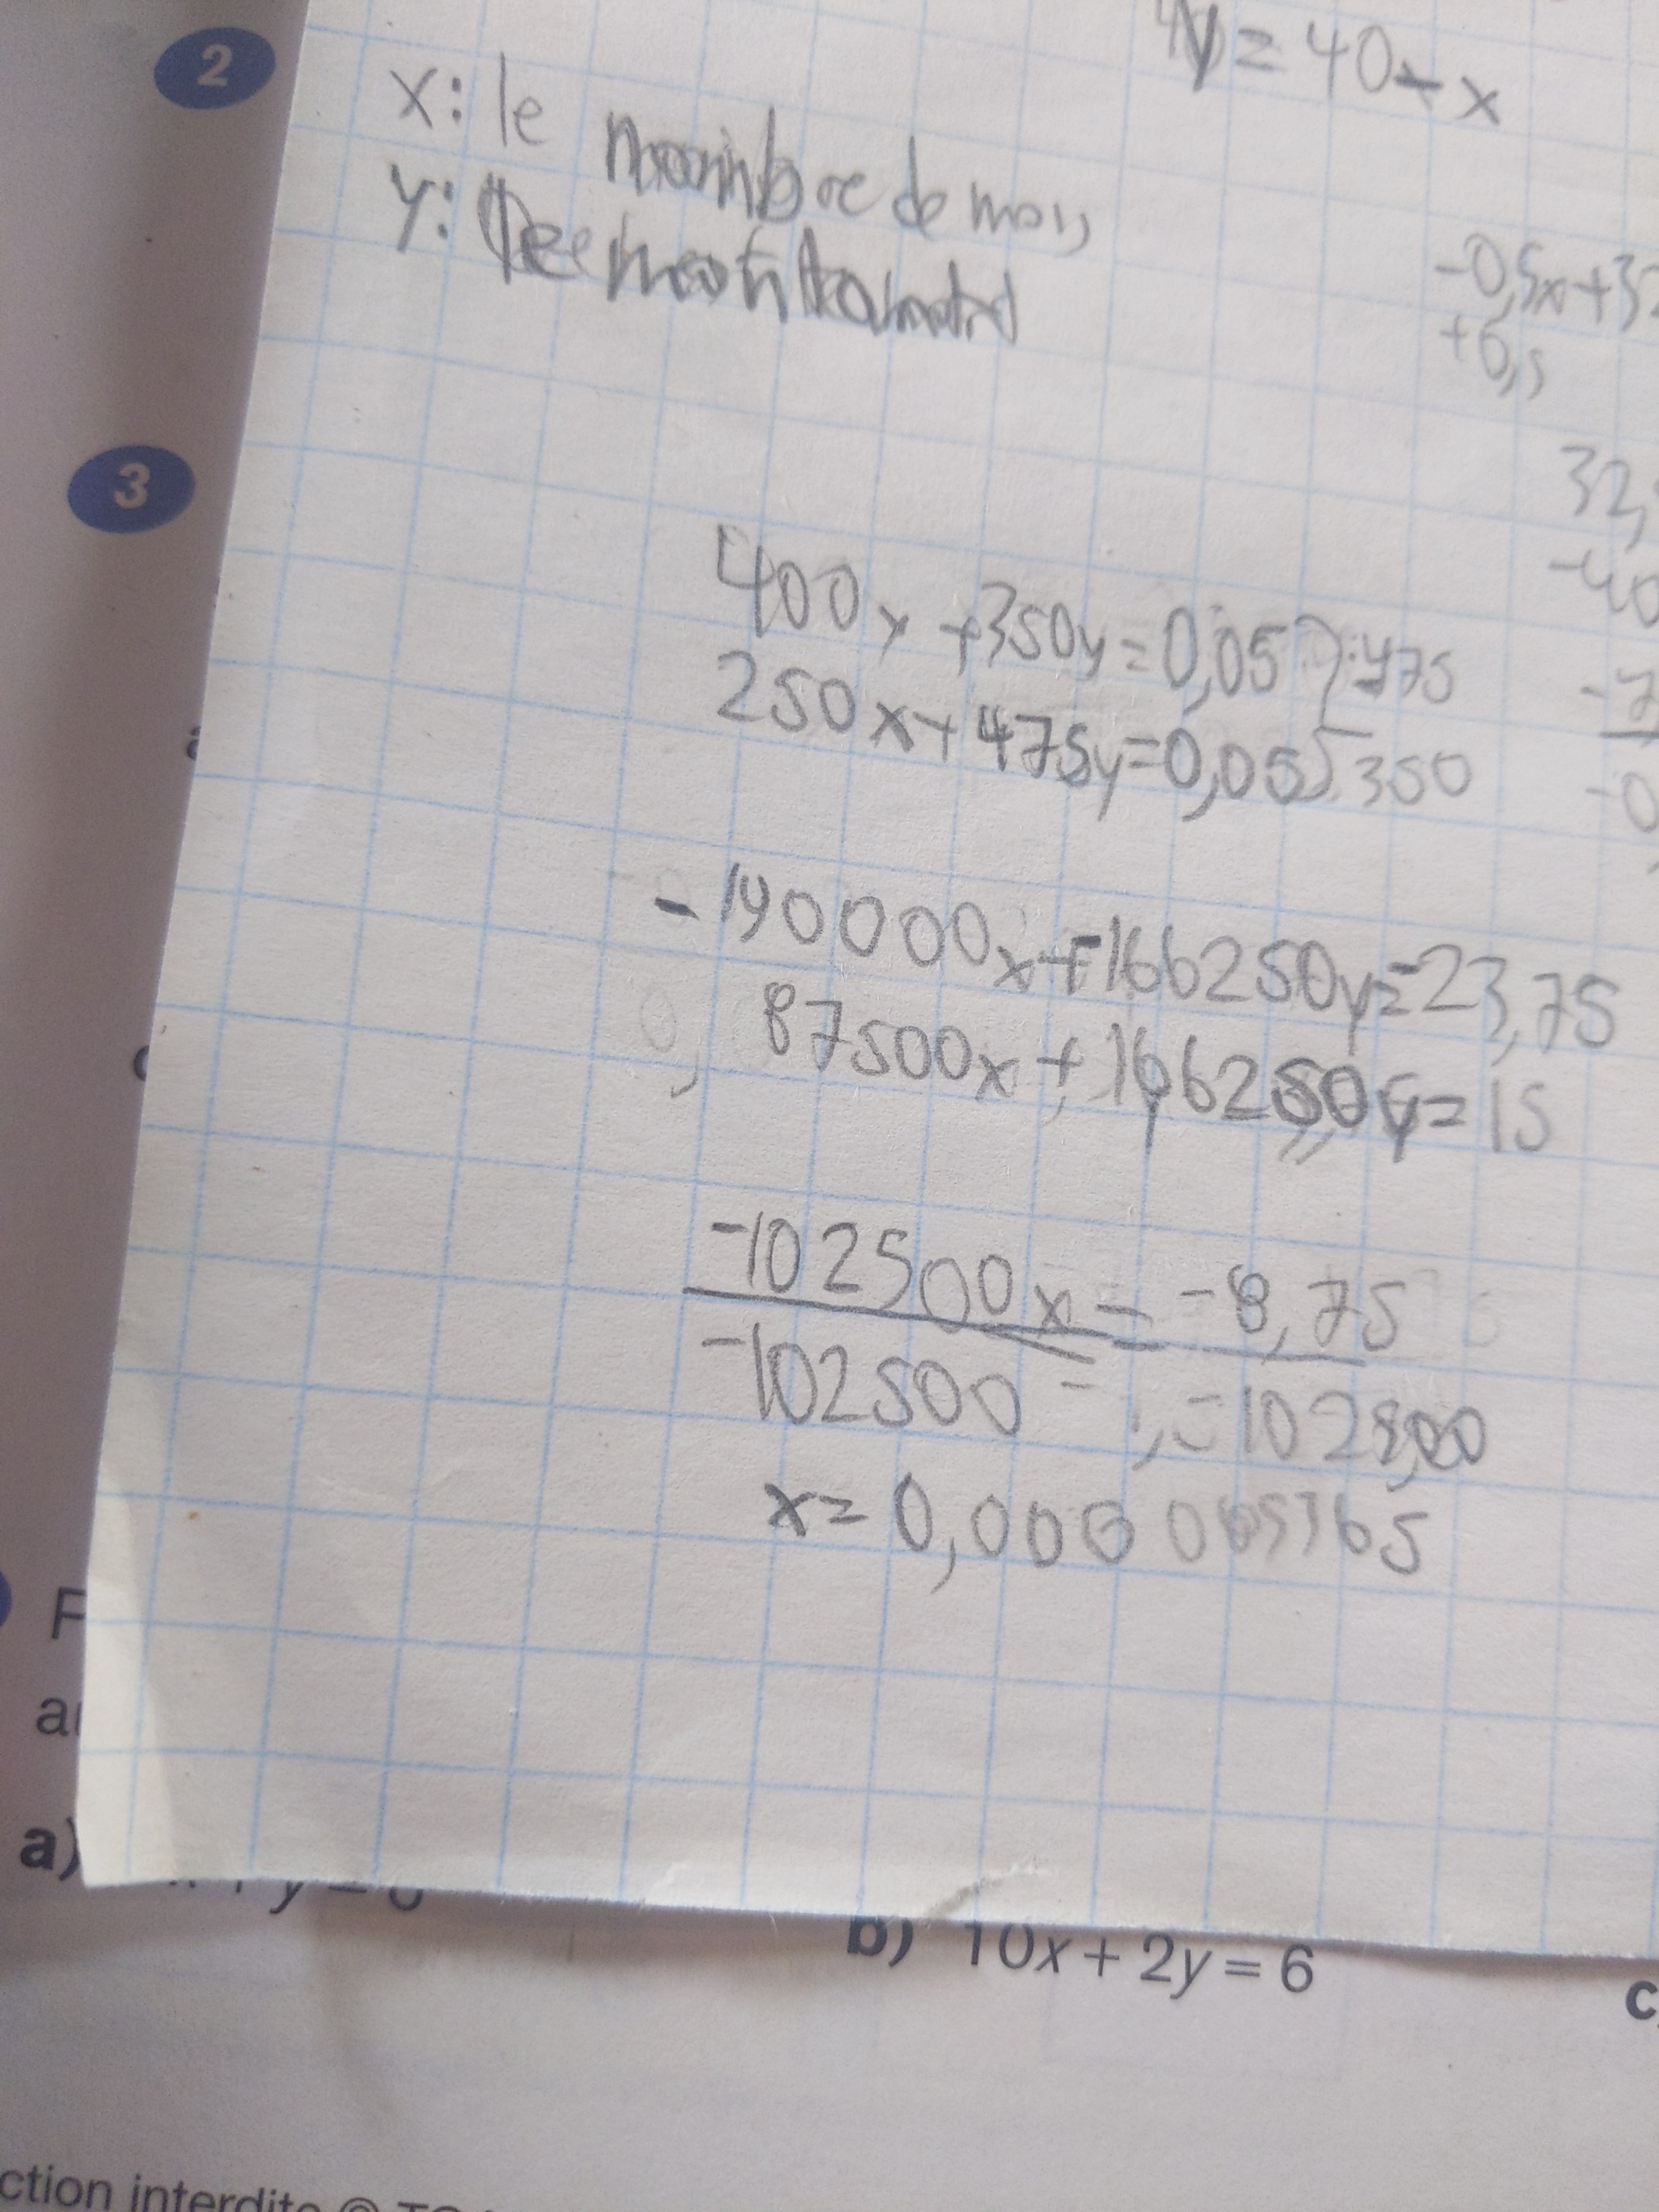 2
y = 40 - x
x: le nombre de mois
y: le montant
-0,5x+32
+0,5
3
32,
-40
400x +350y=0,05 ).-475
250x+475y=0,05 ).350
-7
-0
-190000x+-166250y=-23,75
87500x + 166250y=15
-102500x = -8,75
-102500 = -102500
x= 0,000 085365
F
a)
b) 10x + 2y = 6
c
ction interdite ©